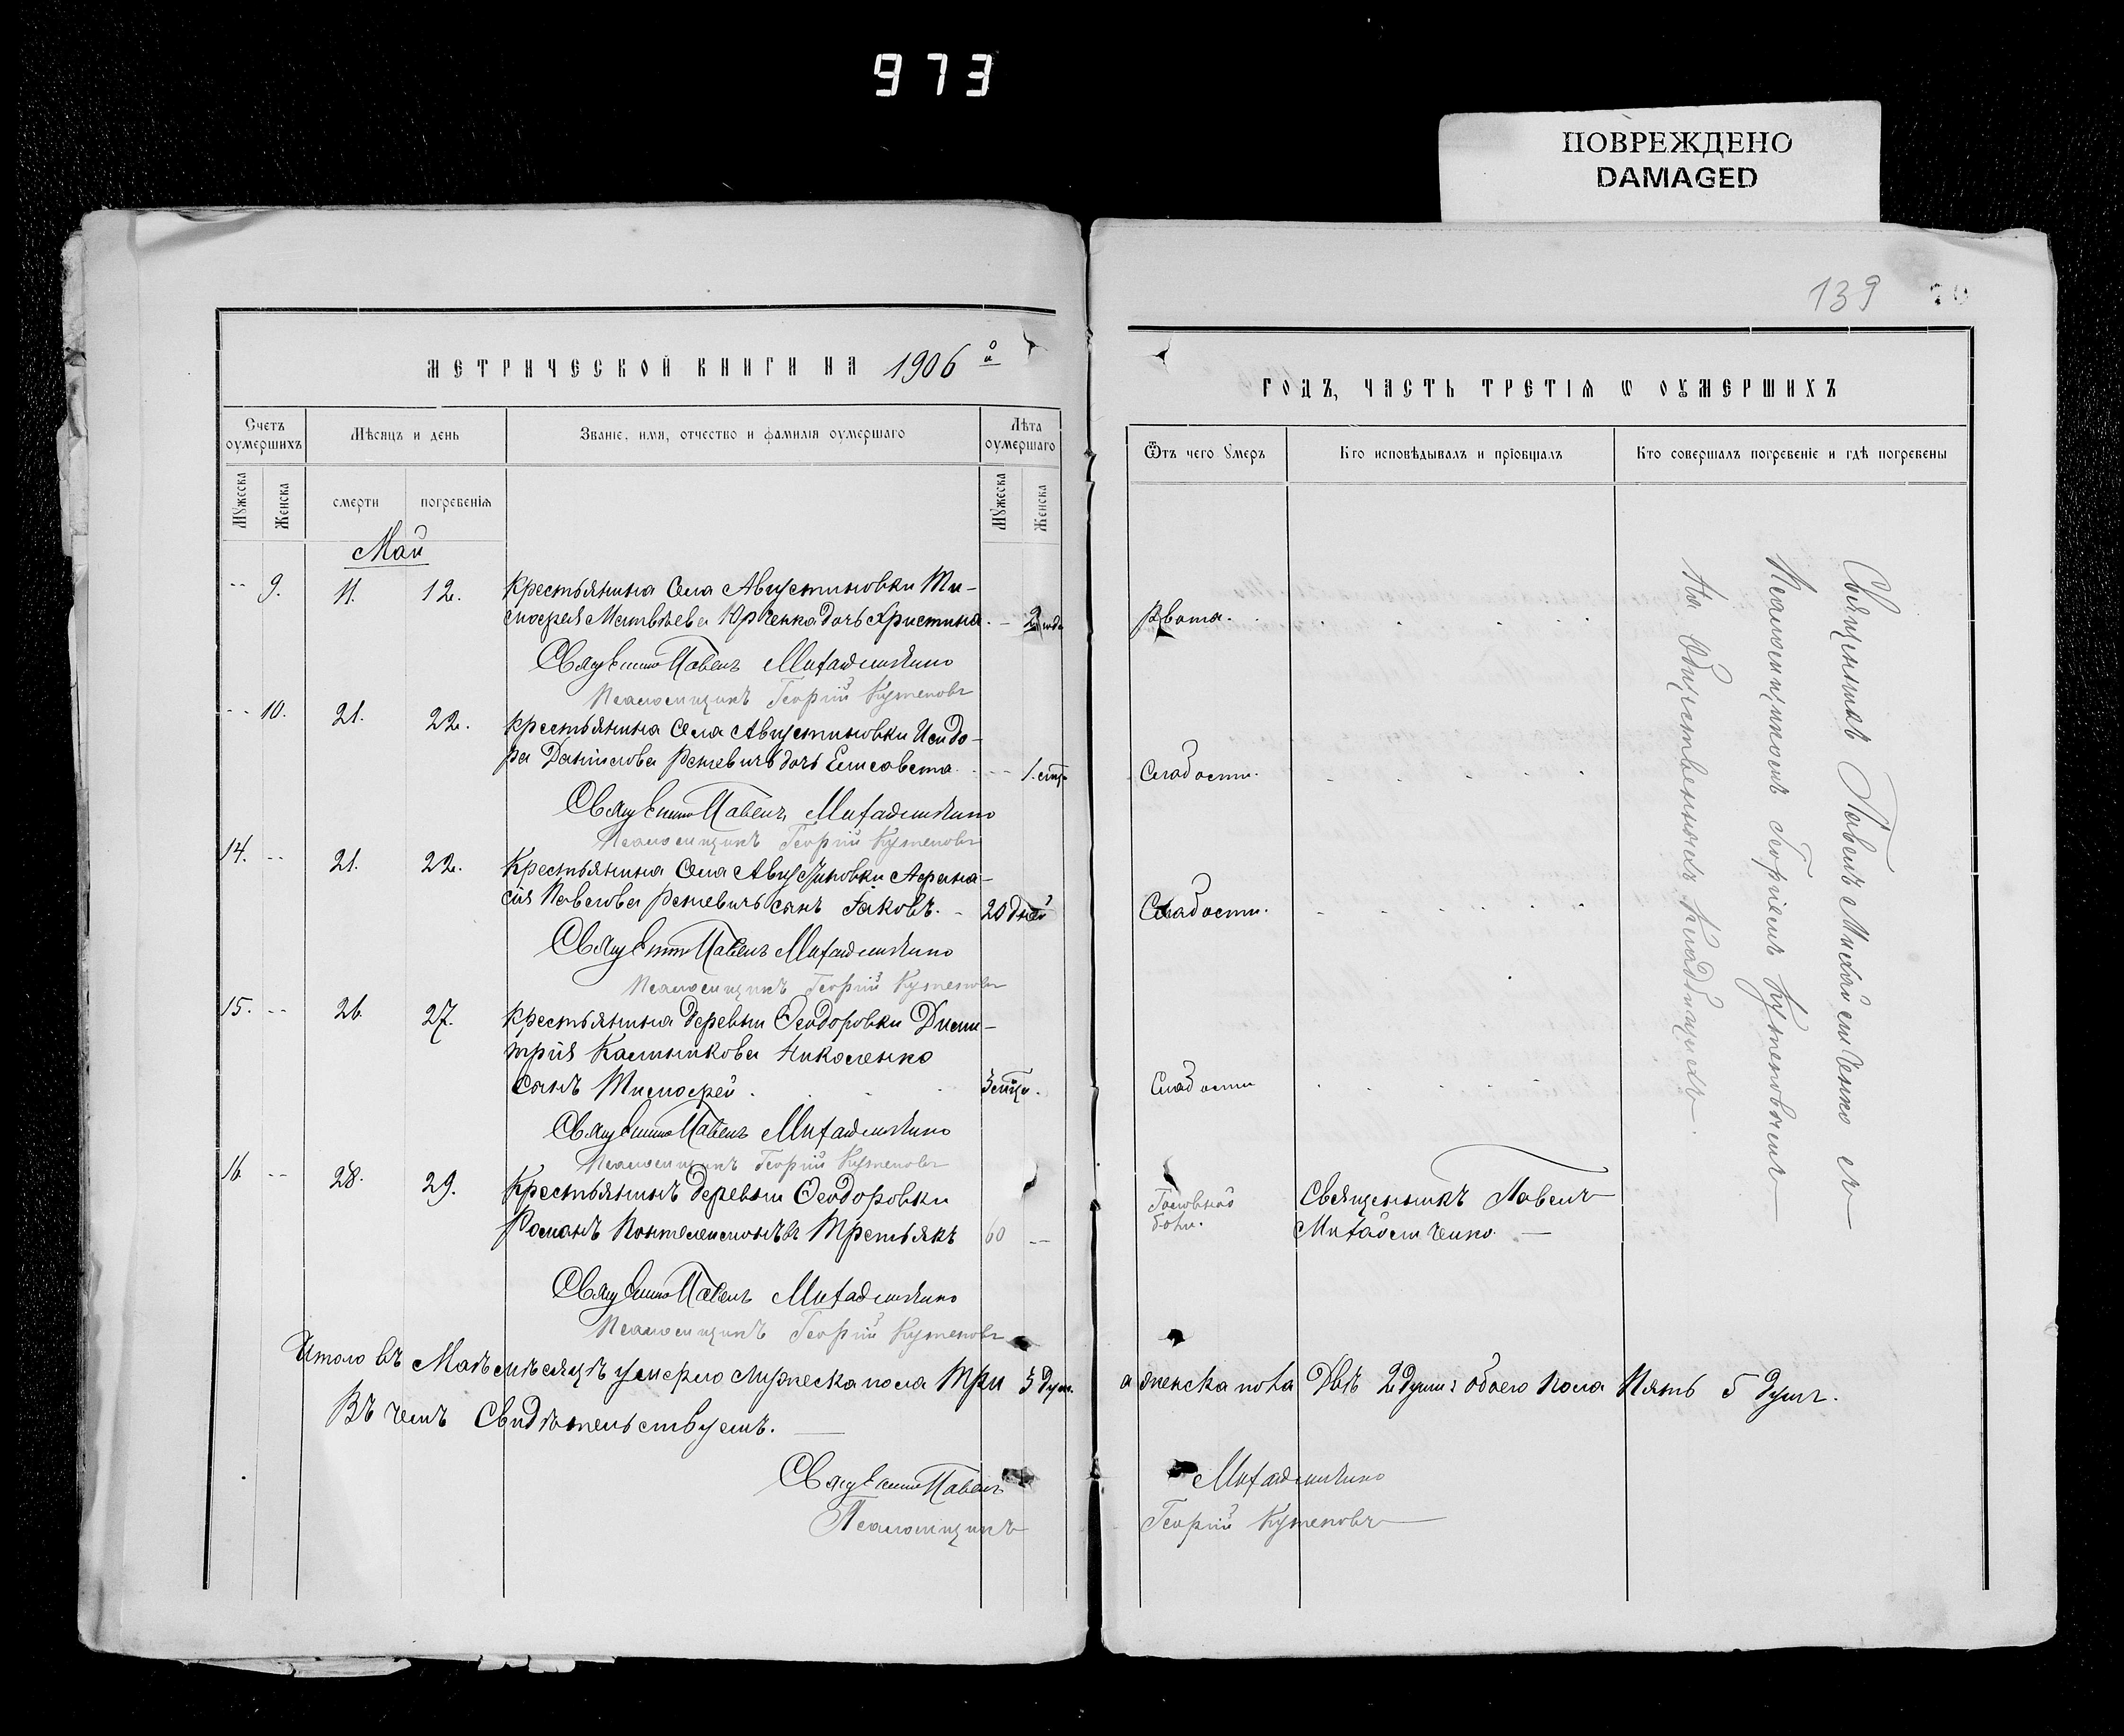 973
ПОВРЕЖДЕНО
DAMAGED
139
МЕТРИЧЕСКОЙ КНИГИ НА 1906й
Счетъ оумершихъ
Мѣсяцъ и день
Званіе, имя, отчество и фамилія оумершаго
Лѣта оумершаго
Мужеска
Женска
смерти
погребенія
Мужеска
Женска
Май
-- 9. 11. 12. Крестьянина Села Августиновки Ти-
моѳея Матвѣева Юрченка дочь Христина. - 2 года
Священникъ Павелъ Михайличенко
Псаломщикъ Георгій Кутеповъ
-- 10. 21. 22. Крестьянина Села Августиновки Исидо-
ра Даніилова Реневичъ дочь Елисавета. -- 1. мѣц.
Священникъ Павелъ Михайличенко
Псаломщикъ Георгій Кутеповъ
14. -- 21. 22. Крестьянина Села Августиновки Аѳана-
сія Павлова Реневичъ сынъ Іаковъ. - 20 дней
Священникъ Павелъ Михайличенко
Псаломщикъ Георгій Кутеповъ
15. -- 26. 27. Крестьянина деревни Ѳеодоровки Дими-
трія Калиникова Николенко
Сынъ Тимоѳей. 3 мѣц.
Священникъ Павелъ Михайличенко
Псаломщикъ Георгій Кутеповъ
16. -- 28. 29. Крестьянинъ деревни Ѳеодоровки
Романъ Пантелеимоновъ Третьякъ 60 --
Священникъ Павелъ Михайличенко
Псаломщикъ Георгій Кутеповъ
Итого въ Маѣ мѣсяцѣ умерло мужеска пола Три 3 душ.
Въ чемъ Свидѣтельствуемъ.
Священникъ Павелъ
Псаломщикъ
ГОДЪ, ЧАСТЬ ТРЕТІЯ Ѡ ОУМЕРШИХЪ
Ѿтъ чего Умеръ
Кто исповѣдывалъ и пріобщалъ
Кто совершалъ погребеніе и гдѣ погребены
Рвота.
Слабости.
Слабости.
Слабости
Головной боли.
Священникъ Павелъ
Михайличенко.
Священникъ Павелъ Михайличенко съ
Псаломщикомъ Георгіемъ Кутеповымъ
На Общественномъ Кладбищѣ.
а женска пола Двѣ 2 души: обоего пола Пять 5 душъ.
Михайличенко
Георгій Кутеповъ